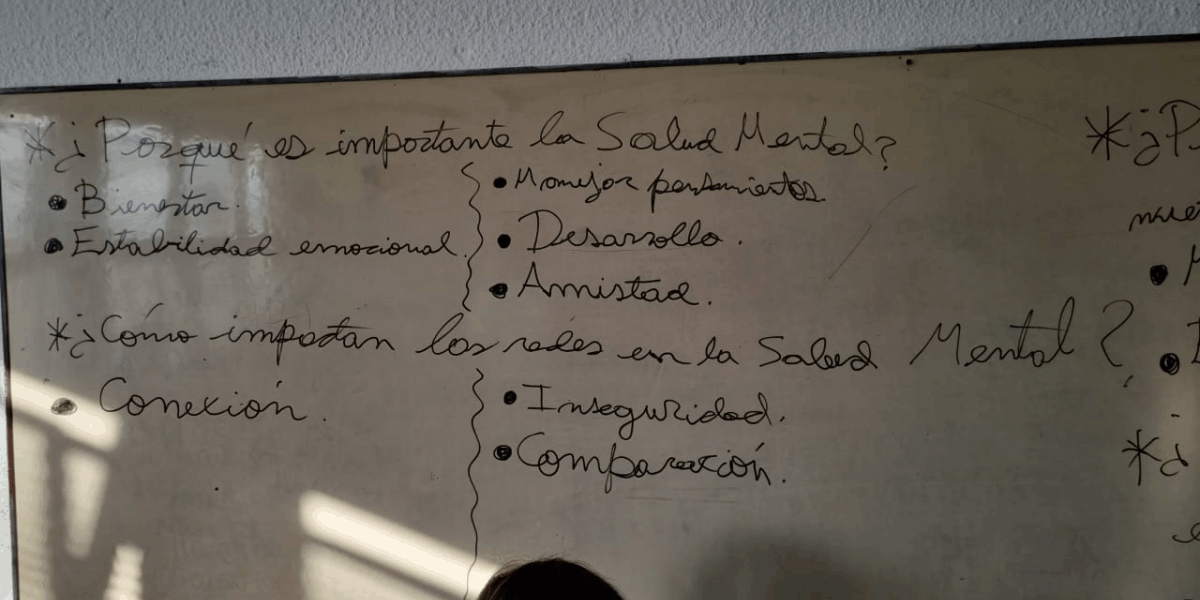 *¿Porqué es importante la Salud Mental?
• Bienestar.
• Estabilidad emocional.
• Manejar pensamientos
• Desarrollo.
• Amistad.
*¿Cómo impactan las redes en la Salud Mental?
• Conexión.
• Inseguridad.
• Comparación.
*¿P
nues
*¿